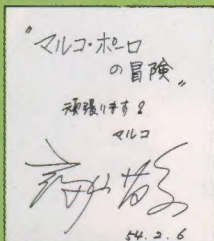 "マルコ・ポーロ
の冒険"
頑張ります!
マルコ
54.2.6